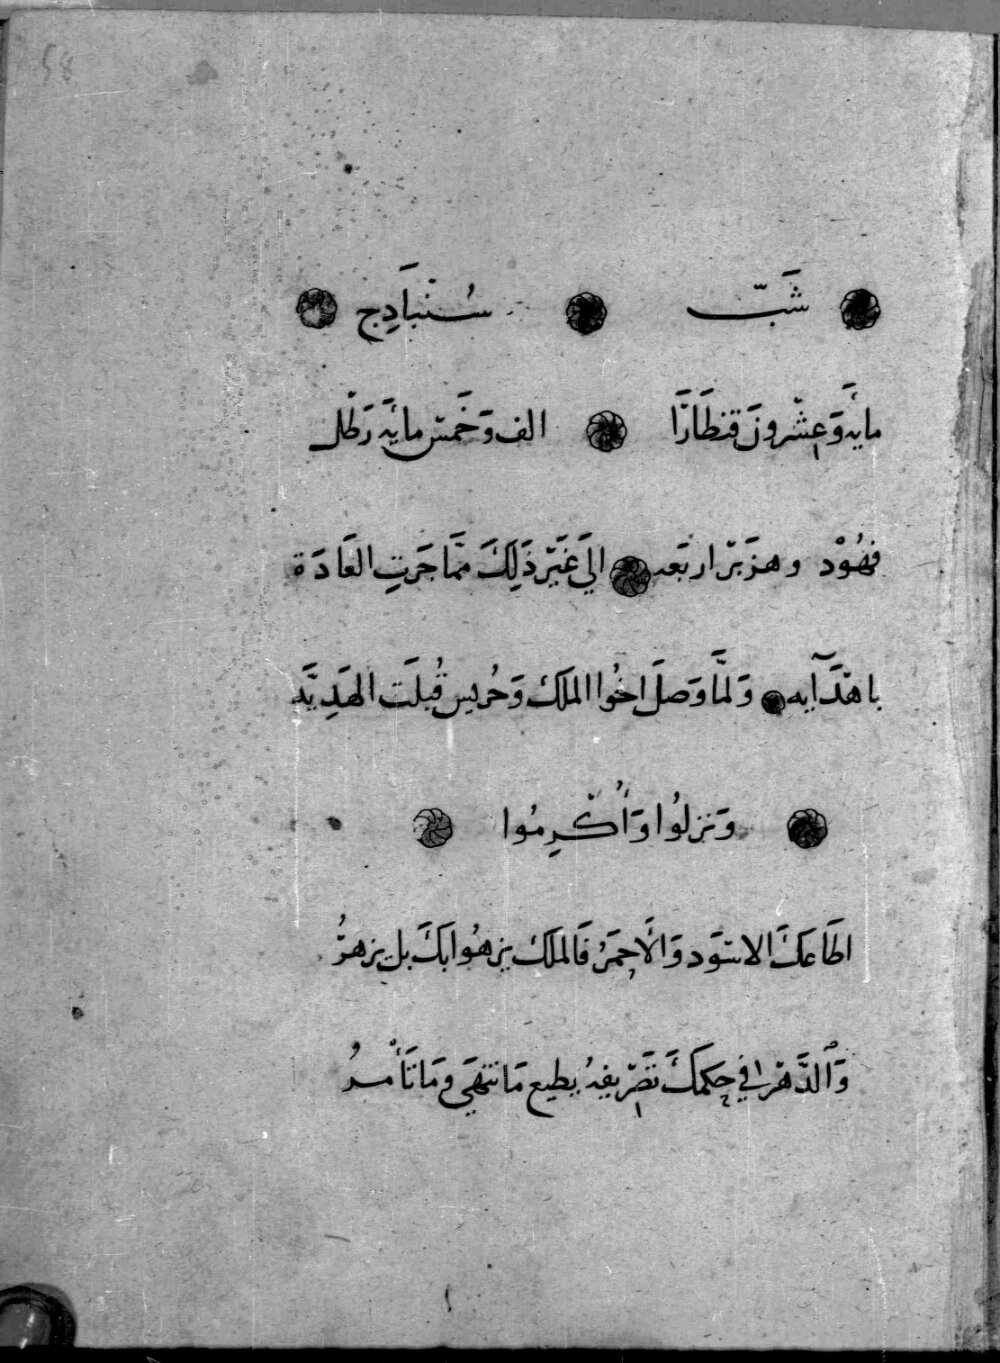 شَبّ سُنْبَادِج
مايه وَعِشْرونَ قنطَارًا الف وَخَمْس مائَه رَطْل
فهُوْد وهزَبْر اربَعه الَي غَيْر ذَلِكَ مَّما جَرَتِ العَادَة
باهْدَآيه وَلمَّا وَصلَ اخُوا الملَك وَحُربس قُبلَت الهَدِيَّه
وَنزلُوا وَأُكْرِمُوا
اطَاعَكَ الاسْوَد وَالَاحمَرُ فَالملَك يزهُوا بَكَ بل يزهرُ
وَٱلدَّهْر في حِكمكَ تَصْرِيفهُ يطيع مَا تنتهَي وَمَا تَأْمرُ